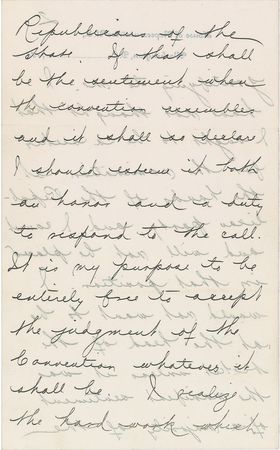 Republicans of the
State. If that shall
be the sentiment when
the convention assembles
and it shall so declare
I should esteem it both
an honor and a duty
to respond to the call.
It is my purpose to be
entirely free to accept
the judgment of the
Convention whatever it
shall be. I realize
the hard work which